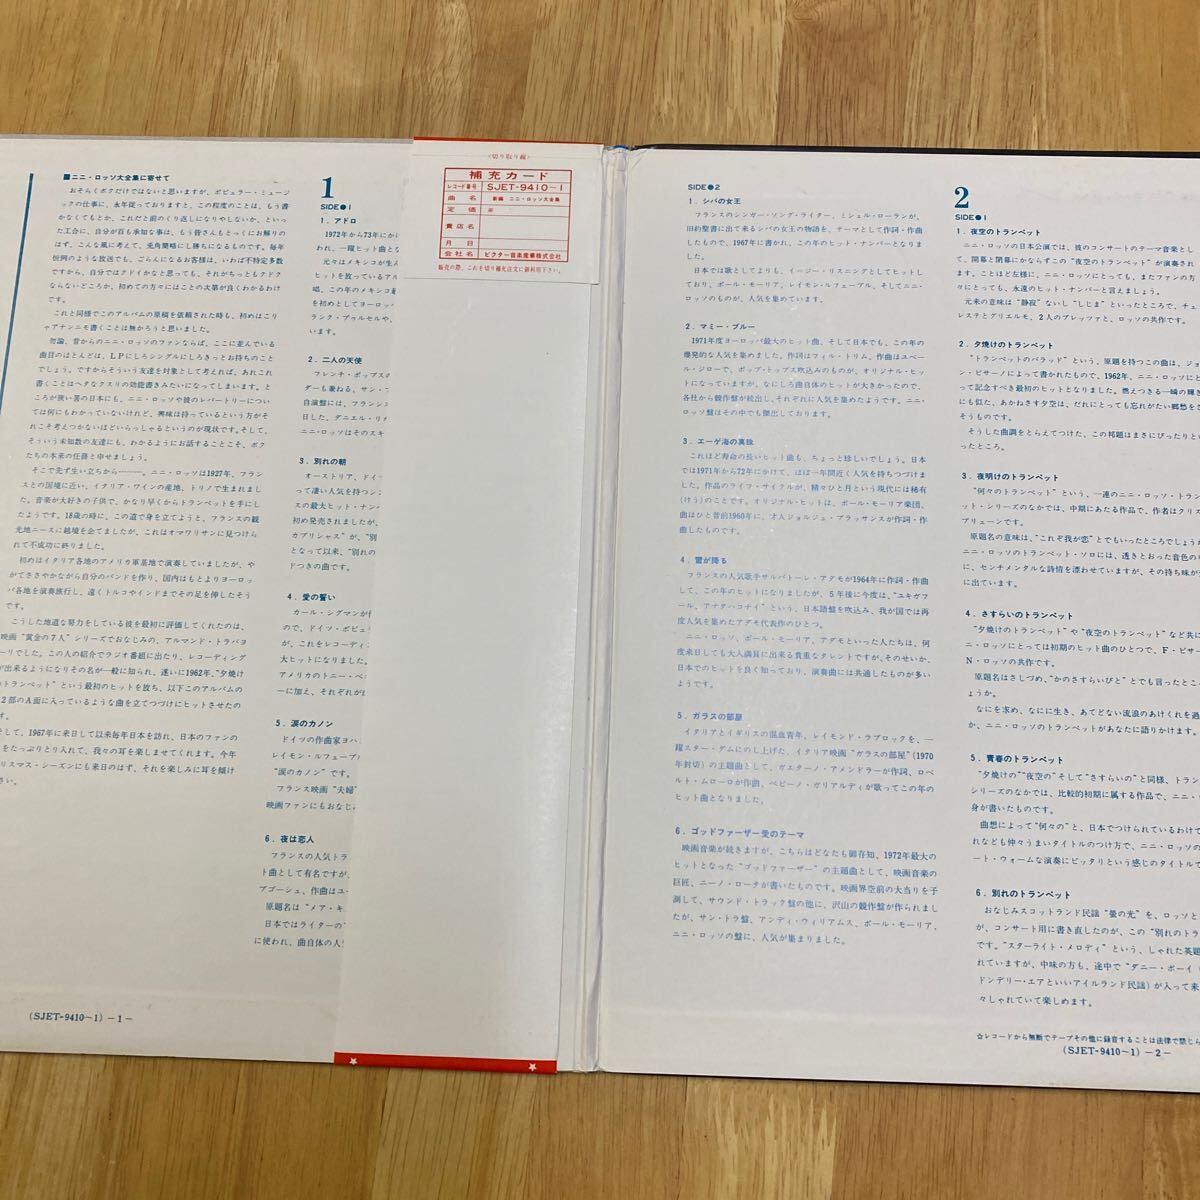 ■ニニ・ロッソ大全集に寄せて
おそらくボクだけではないと思いますが、ポピュラー・ミュージ
ックの仕事に、永年従っておりますと、この程度のことは、もう書
かなくてもとか、これだと前のくり返しになりやしないか、といっ
た工合に、自分が百も承知な事は、もう皆さんもとっくにお解りの
はず、こんな風に考えて、兎角簡略にし勝ちになるものです。毎年
恒例のような放送でも、ごらんになるお客様は、いわば不特定多数
ですから、自分ではクドイかなと思っても、それがちっともクドク
ならないどころか、初めての方々にはことの次第が良くわかるわけ
です。
これと同様でこのアルバムの原稿を依頼された時も、初めはこり
ゃアナンニモ書くことは無かろうと思いました。
勿論、昔からのニニ・ロッソのファンならば、ここに並んでいる
曲目のほとんどは、LPにしろシングルにしろきっとお持ちのこと
でしょう。ですからそういう友達を対象として考えれば、あれこれ
書くことはヘタなクスリの効能書きみたいになってしまいます。と
ころが狭い筈の日本にも、ニニ・ロッソや彼のレパートリーについ
ては何にもわかっていないけれど、興味は持っているという方がそ
れこそ考えつかないほどいらっしゃるというのが現状です。そして、
そういう未知数の友達にも、わかるようにお話することこそ、ボク
たちの本来の任務と申せましょう。
そこで先ず生い立ちから―――。ニニ・ロッソは1927年、フラン
スとの国境に近い、イタリア・ワインの産地、トリノで生まれまし
た。音楽が大好きの子供で、かなり早くからトランペットを手にし
たようです。18歳の時に、この道で身を立てようと、フランスの観
光地ニースに越境を企てましたが、これはオマワリサンに見つけら
れて不成功に終りました。
初めはイタリア各地のアメリカ軍基地で演奏していましたが、や
がてささやかながら自分のバンドを作り、国内はもとよりヨーロッ
パ各地を演奏旅行し、遠くトルコやインドまでその足を伸したそう
です。
こうした地道な努力をしている彼を最初に評価してくれたのは、
映画“黄金の7人”シリーズでおなじみの、アルマンド・トラバヨ
ーリでした。この人の紹介でラジオ番組に出たり、レコーディング
が出来るようになりその名が一般に知られ、遂いに1962年、“夕焼け
のトランペット”という最初のヒットを放ち、以下このアルバムの
2部のA面に入っているような曲を立てつづけにヒットさせたの
す。
そして、1967年に来日して以来毎年日本を訪れ、日本のファンの
をたっぷりとり入れて、我々の耳を楽しませてくれます。今年
リスマス・シーズンにも来日のはず、それを楽しみに耳を傾け
さい。
(SJET-9410～1) －1－
1
SIDE●1
1．アドロ
1972年から73年にか
われ、一躍ヒット曲と
元々はメキシコが生ん
ヒットを放っているアル
唱、この年のメキシコ最
を初めとしてヨーロッ
ランク・プゥルセルや、
います。
2．二人の天使
フレンチ・ポップス
ダーも兼ねる、サン・プ
自演盤には、フランシ
日した、ダニエル・リカ
ニニ・ロッソはそのスキ
3．別れの朝
オーストリア、ドイ
って凄い人気を持つシン
スの最大ヒット・ナン
初め発売されましたが、
カプリシャス”が、“別れ
となって以来、“別れの
ドつきの曲です。
4．愛の誓い
カール・シグマンが
ので、ドイツ・ポピュ
が、これをレコーディ
大ヒットになりました。
アメリカのトニー・ベ
ーに加え、それぞれが
5．涙のカノン
ドイツの作曲家ヨハン
レイモン・ルフェーブ
“涙のカノン”です。
フランス映画“夫婦”
映画ファンにもおなじみ
6．夜は恋人
フランスの人気トラ
ト曲として有名ですが、
アゴーシュ、作曲はユー
原題名は“メア・キ
日本ではライターの
に使われ、曲自体の人
〈切り取り線〉
補充カード
レコード番号 SJET-9410～1
曲名 新編 ニニ・ロッソ大全集
定価 ￥
貴店名
月日
会社名 ビクター音楽産業株式会社
販売の際、これを切り補充注文に御利用下さい。
SIDE●2
1．シバの女王
フランスのシンガー・ソング・ライター、ミシェル・ローランが、
旧約聖書に出て来るシバの女王の物語を、テーマとして作詞・作曲
したもので、1967年に書かれ、この年のヒット・ナンバーとなりま
した。
日本では歌としてよりも、イージー・リスニングとしてヒットし
ており、ポール・モーリア、レイモン・ルフェーブル、そしてニニ・
ロッソのものが、人気を集めています。
2．マミー・ブルー
1971年度ヨーロッパ最大のヒット曲、そして日本でも、この年の
爆発的な人気を集めました。作詞はフィル・トリム、作曲はユベー
ル・ジローで、ポップ・トップス吹込みのものが、オリジナル・ヒッ
トになっていますが、なにしろ曲自体のヒットが大きかったので、
各社から競作盤が続出し、それぞれに人気を集めたようです。ニニ・
ロッソ盤はその中でも傑出しております。
3．エーゲ海の真珠
これほど寿命の長いヒット曲も、ちょっと珍しいでしょう。日本
では1971年から72年にかけて、ほぼ一年間近く人気を持ちつづけま
した。作品のライフ・サイクルが、精々ひと月という現代には稀有
（けう）のことです。オリジナル・ヒットは、ポール・モーリア楽団、
曲はひと昔前1960年に、才人ジョルジュ・ブラッサンスが作詞・作
曲したものです。
4．雪が降る
フランスの人気歌手サルバトーレ・アダモが1964年に作詞・作曲
して、この年のヒットになりましたが、5年後に今度は、“ユキガフ
ール、アナタハコナイ”という、日本語盤を吹込み、我が国では再
度人気を集めたアダモ代表作のひとつ。
ニニ・ロッソ、ポール・モーリア、アダモといった人たちは、何
度来日しても大入満員に出来る貴重なタレントですが、そのせいか、
日本でのヒットを良く知っており、演奏曲には共通したものが多い
ようです。
5．ガラスの部屋
イタリアとイギリスの混血青年、レイモンド・ラブロックを、一
躍スター・ダムにのし上げた、イタリア映画“ガラスの部屋”（1970
年封切）の主題曲として、ガエターノ・アメンドラーが作詞、ロベ
ルト・ムローロが作曲、ペピーノ・ガリアルディが歌ってこの年の
ヒット曲となりました。
6．ゴッドファーザー愛のテーマ
映画音楽が続きますが、こちらはどなたも御存知、1972年最大の
ヒットとなった“ゴッドファーザー”の主題曲として、映画音楽の
巨匠、ニーノ・ロータが書いたものです。映画界空前の大当りを予
測して、サウンド・トラック盤の他に、沢山の競作盤が作られまし
たが、サン・トラ盤、アンディ・ウィリアムス、ポール・モーリア、
ニニ・ロッソの盤に、人気が集まりました。
2
SIDE●1
1．夜空のトランペット
ニニ・ロッソの日本公演では、彼のコンサートのテーマ音楽とし
て、開幕と閉幕にかならずこの“夜空のトランペット”が演奏され
ます。ことほど左様に、ニニ・ロッソにとっても、またファンの方
々にとっても、永遠のヒット・ナンバーと言えましょう。
元来の意味は“静寂”ないし“しじま”といったところで、チェ
レステとグリエルモ、2人のブレッツァと、ロッソの共作です。
2．夕焼けのトランペット
“トランペットのバラッド”という、原題を持つこの曲は、ジョ
ン・ピサーノによって書かれたもので、1962年、ニニ・ロッソにと
って記念すべき最初のヒットとなりました。燃えつきる一瞬の輝き
にも似た、あかねさす夕空は、だれにとっても忘れがたい郷愁をさ
そうものです。
そうした曲調をとらえてつけた、この邦題はまさにぴったりとい
ったところ。
3．夜明けのトランペット
“何々のトランペット”という、一連のニニ・ロッソ・トラン
ット・シリーズのなかでは、中期にあたる作品で、作者はクリス
ブリェーンです。
原題名の意味は、“これぞ我が恋”とでもいったところでしょうか
ニニ・ロッソのトランペット・ソロには、透きとおった音色の
に、センチメンタルな詩情を漂わせていますが、その持ち味が
に出ています。
4．さすらいのトランペット
“夕焼けのトランペット”や“夜空のトランペット”など共に
ニニ・ロッソにとっては初期のヒット曲のひとつで、F・ピサー
N・ロッソの共作です。
原題名はさしづめ、“かのさすらいびと”とでも言ったところ
ょうか。
なにを求め、なにに生き、あてどない流浪のあけくれを過
か、ニニ・ロッソのトランペットがあなたに語りかけます。
5．青春のトランペット
“夕焼けの”“夜空の”そして“さすらいの”と同様、トラン
シリーズのなかでは、比較的初期に属する作品で、ニニ・
身が書いたものです。
曲想によって“何々の”と、日本でつけられているわけで
れなども仲々うまいタイトルのつけ方で、ニニ・ロッソの
ート・ウォームな演奏にピッタリという感じのタイトルで
6．別れのトランペット
おなじみスコットランド民謡“螢の光”を、ロッソと
が、コンサート用に書き直したのが、この“別れのトラ
です。“スターライト・メロディ”という、しゃれた英題
れていますが、中味の方も、途中で“ダニー・ボーイ（
ドンデリー・エアといいアイルランド民謡）が入って来
々しゃれていて楽しめます。
☆レコードから無断でテープその他に録音することは法律で禁じら
(SJET-9410～1) －2－